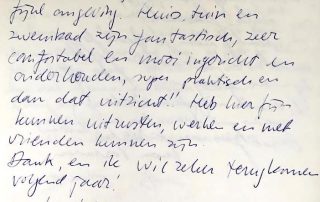 fijne omgeving. Huis, tuin en
zwembad zijn fantastisch, zeer
comfortabel en mooi ingericht en
onderhouden, super praktisch en
dan dat uitzicht!! Heb hier fijn
kunnen uitrusten, werken en met
vrienden kunnen zijn.
Dank, en ik wil zeker terugkomen
volgend jaar!